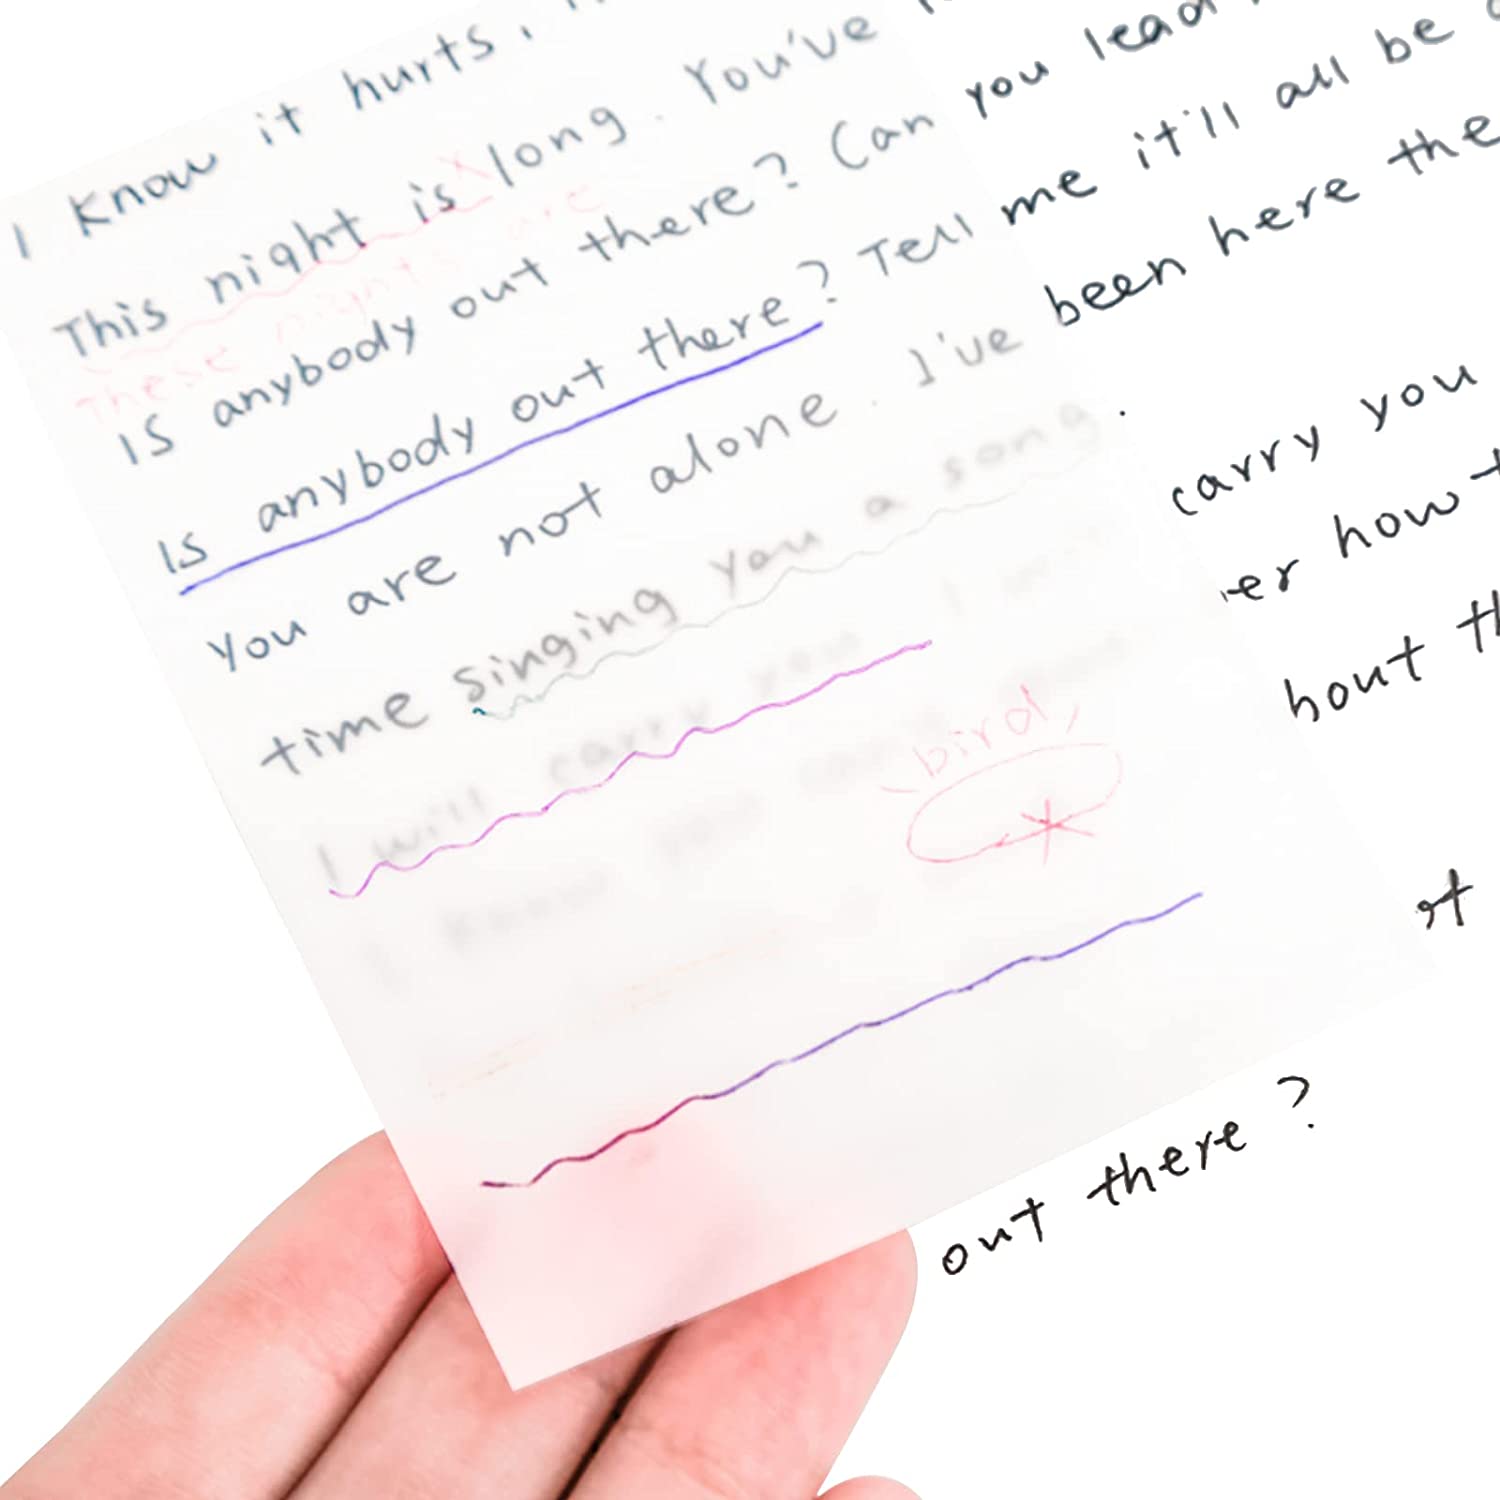 I Know it hurts,
This night is long. You've
These night are
IS anybody out there? Can you lead
Is anybody out there? Tell me it'll all be
You are not alone. I've been here the
time singing you a song.
I will carry you carry you
I know you can't er how
bird, bout
out there?